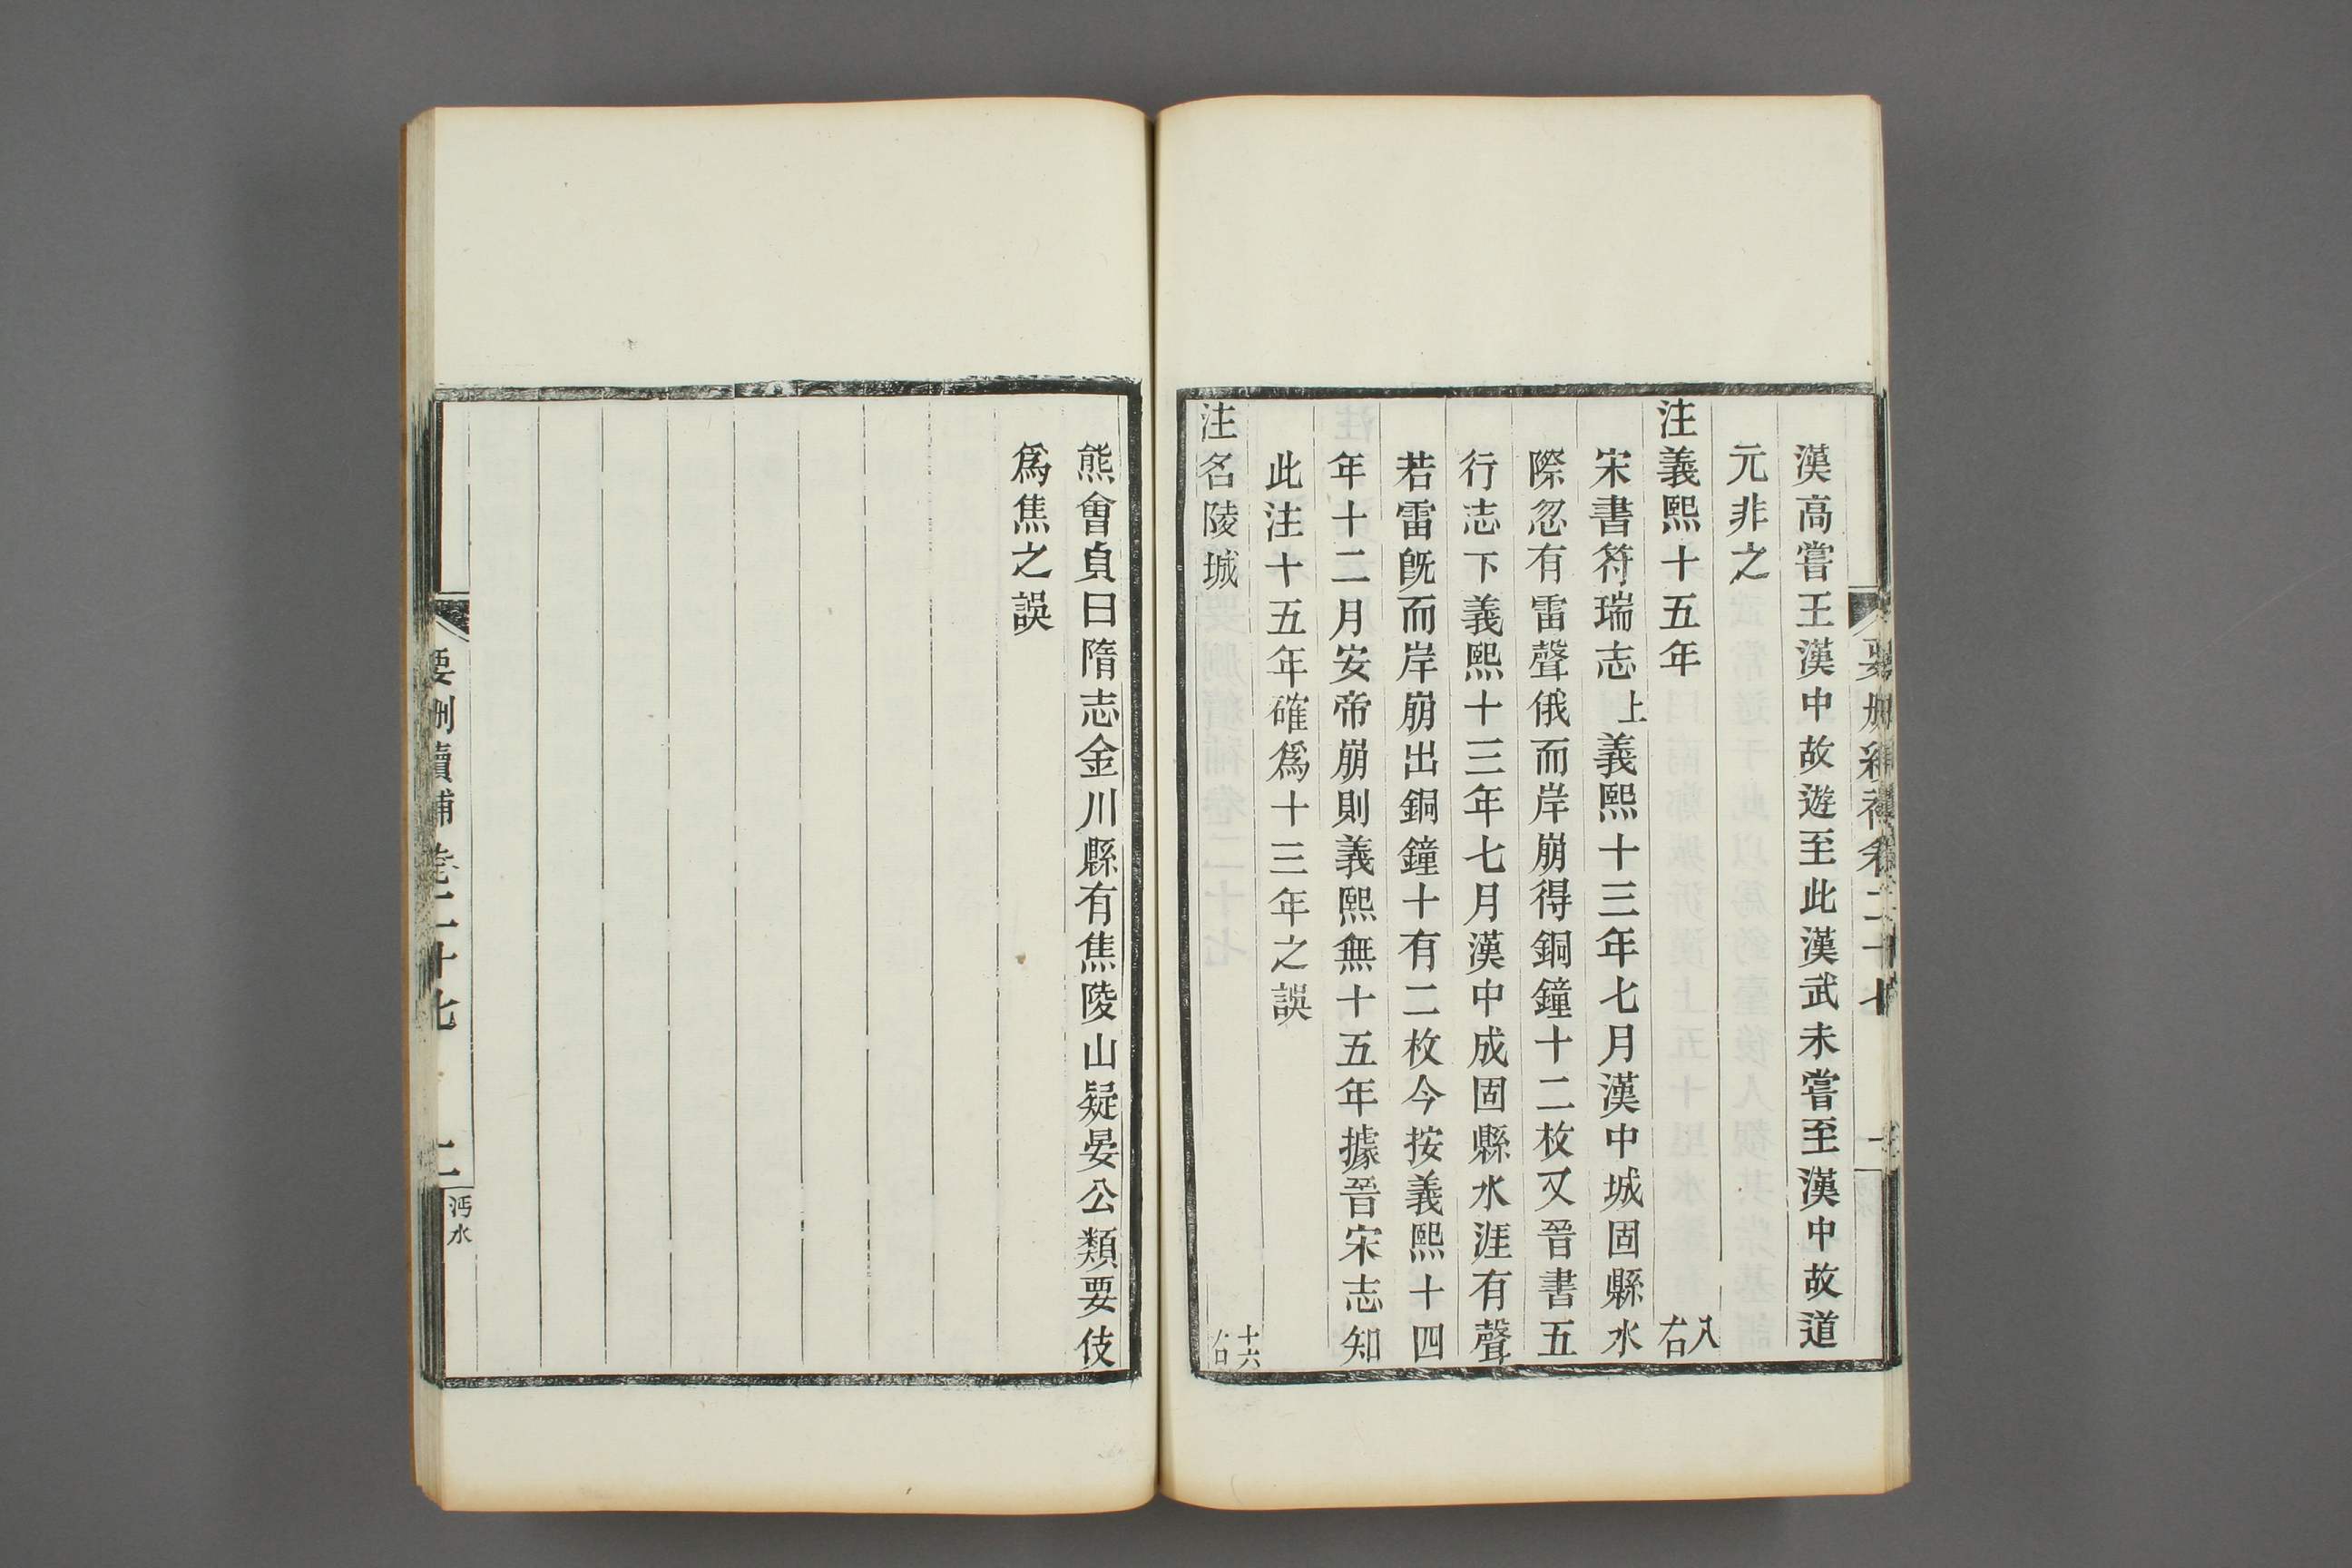 漢高嘗王漢中故遊至此漢武未嘗至漢中故道
元非之
注義熙十五年 八右
宋書符瑞志上義熙十三年七月漢中城固縣水
際忽有雷聲俄而岸崩得銅鐘十二枚又晉書五
行志下義熙十三年七月漢中成固縣水涯有聲
若雷旣而岸崩出銅鐘十有二枚今按義熙十四
年十二月安帝崩則義熙無十五年據晉宋志知
此注十五年確爲十三年之誤
注名陵城 十六右
熊會貞曰隋志金川縣有焦陵山疑晏公類要伎
爲焦之誤
要刪續補卷二十七 二 沔水